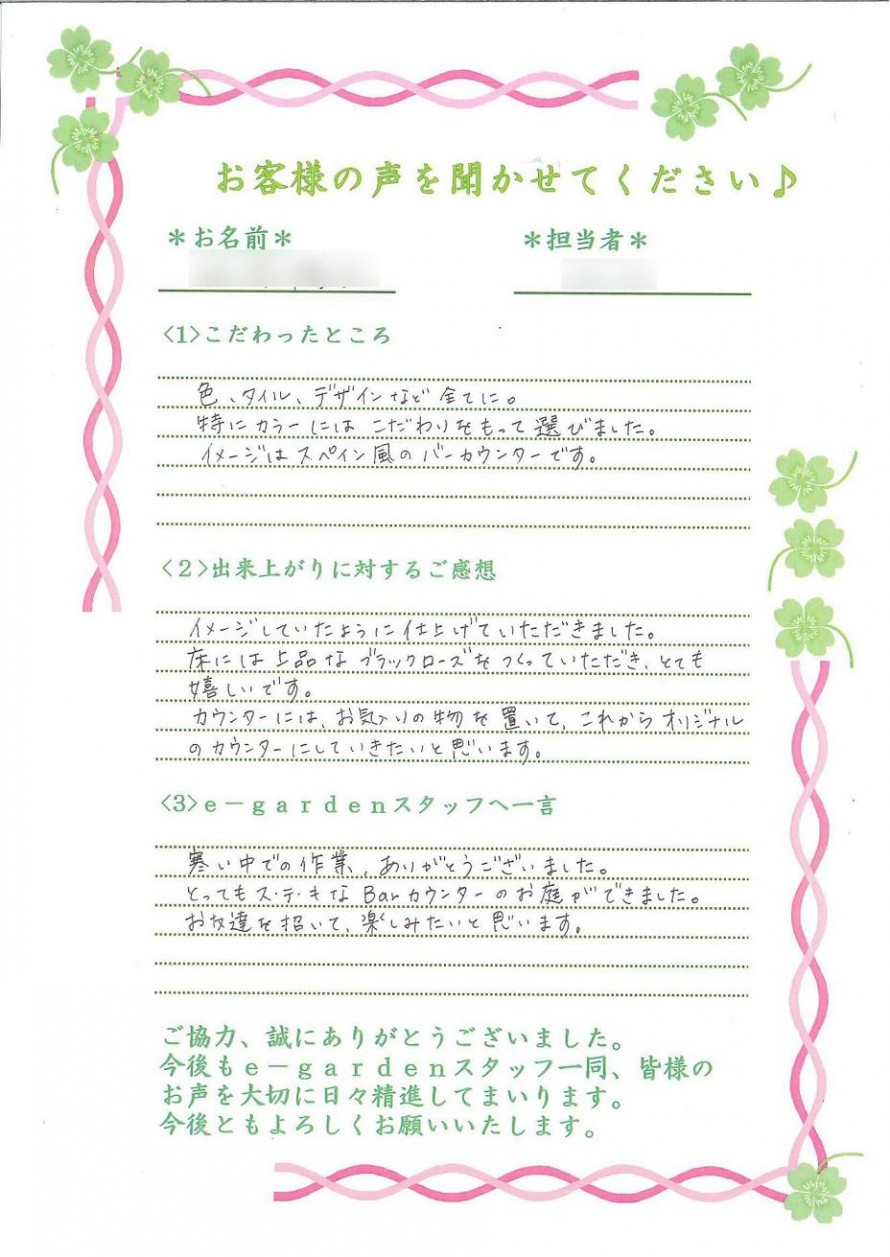 お客様の声を聞かせてください♪
＊お名前＊
＊担当者＊
<1>こだわったところ
色、タイル、デザインなど全てに。
特にカラーにはこだわりをもって選びました。
イメージはスペイン風のバーカウンターです。
<2>出来上がりに対するご感想
イメージしていたように仕上げていただきました。
床には上品なブラックローズをつくっていただき、とても
嬉しいです。
カウンターには、お気入りの物を置いて、これからオリジナル
のカウンターにしていきたいと思います。
<3>ｅ－ｇａｒｄｅｎスタッフへ一言
寒い中での作業、ありがとうございました。
とってもス・テ・キなBarカウンターのお庭ができました。
お友達を招いて、楽しみたいと思います。
ご協力、誠にありがとうございました。
今後もｅ－ｇａｒｄｅｎスタッフ一同、皆様の
お声を大切に日々精進してまいります。
今後ともよろしくお願いいたします。